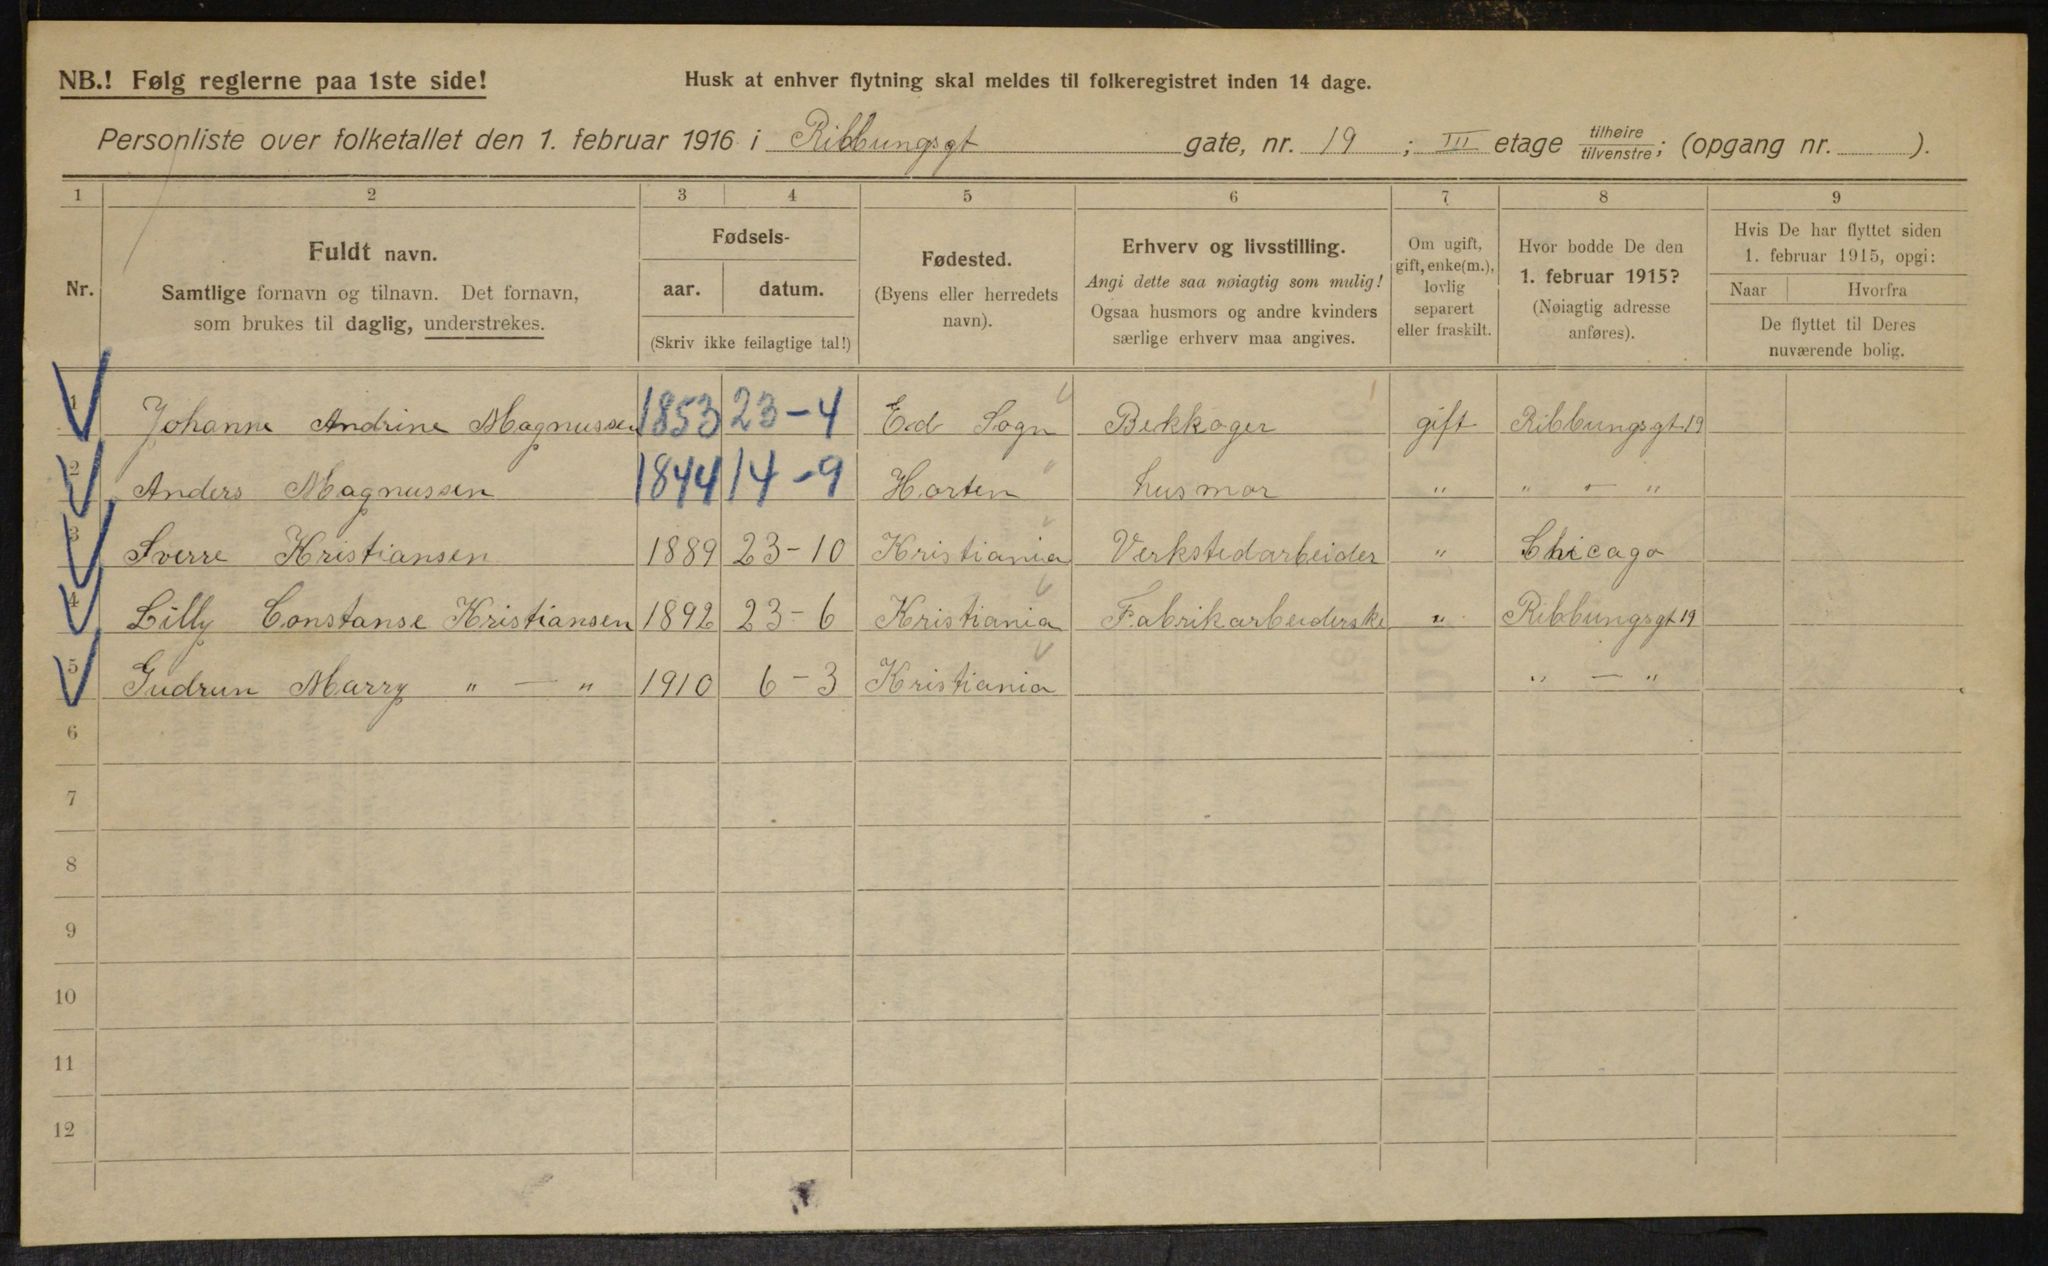 NB.! Følg reglerne paa 1ste side!
Husk at enhver flytning skal meldes til folkeregistret inden 14 dage.
Personliste over folketallet den 1. februar 1916 i Ribbungsgt gate, nr. 19 ; III etage tilhøire/tilvenstre; (opgang nr. ).
1 2 3 4 5 6 7 8 9
Nr.
Fuldt navn.
Samtlige fornavn og tilnavn. Det fornavn,
som brukes til daglig, understrekes.
Fødsels-
aar. datum.
(Skriv ikke feilagtige tal!)
Fødested.
(Byens eller herredets
navn).
Erhverv og livsstilling.
Angi dette saa nøiagtig som mulig!
Ogsaa husmors og andre kvinders
særlige erhverv maa angives.
Om ugift,
gift, enke(m.),
lovlig
separert
eller fraskilt.
Hvor bodde De den
1. februar 1915?
(Nøiagtig adresse
anføres).
Hvis De har flyttet siden
1. februar 1915, opgi:
Naar Hvorfra
De flyttet til Deres
nuværende bolig.
1 Johanne Andrine Magnussen 1853 23-4 Ed Sogn Bekkager gift Ribbungsgt 19
2 Anders Magnussen 1844 14-9 Horten husmor " " - "
3 Sverre Kristiansen 1889 23-10 Kristiania Verkstedarbeider " Chicago
4 Lilly Constanse Kristiansen 1892 23-6 Kristiania Fabrikarbeiderske " Ribbungsgt 19
5 Gudrun Marry " — " 1910 6-3 Kristiania " — "
6
7
8
9
10
11
12